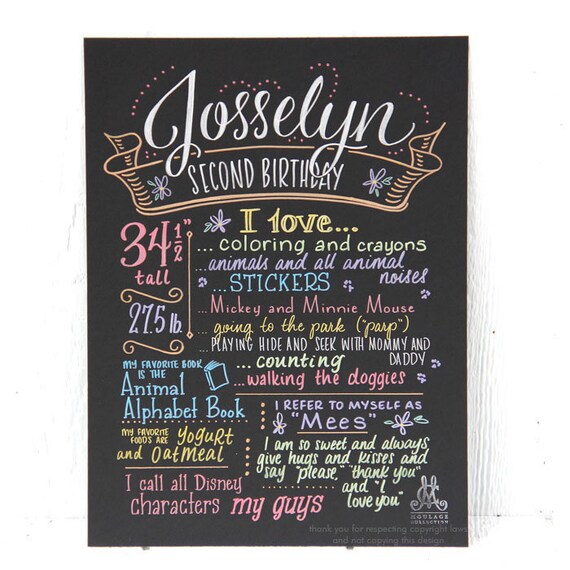 Josselyn
SECOND BIRTHDAY
34 1/2"
tall
27.5 lb.
I love...
...coloring and crayons
...animals and all animal
noises
...STICKERS
...Mickey and Minnie Mouse
...going to the park ("parp")
...PLAYING HIDE AND SEEK WITH MOMMY AND
DADDY
...counting
...walking the doggies
MY FAVORITE BOOK
IS THE
Animal
Alphabet Book
MY FAVORITE
FOODS ARE YOGURT
and OATMEAL
I call all Disney
characters my guys
I REFER TO MYSELF AS
"Mees"
I am so sweet and always
give hugs and kisses and
say "please," "thank you"
and "I
love you"
MOULAGE
COLLECTION
thank you for respecting copyright laws
and not copying this design